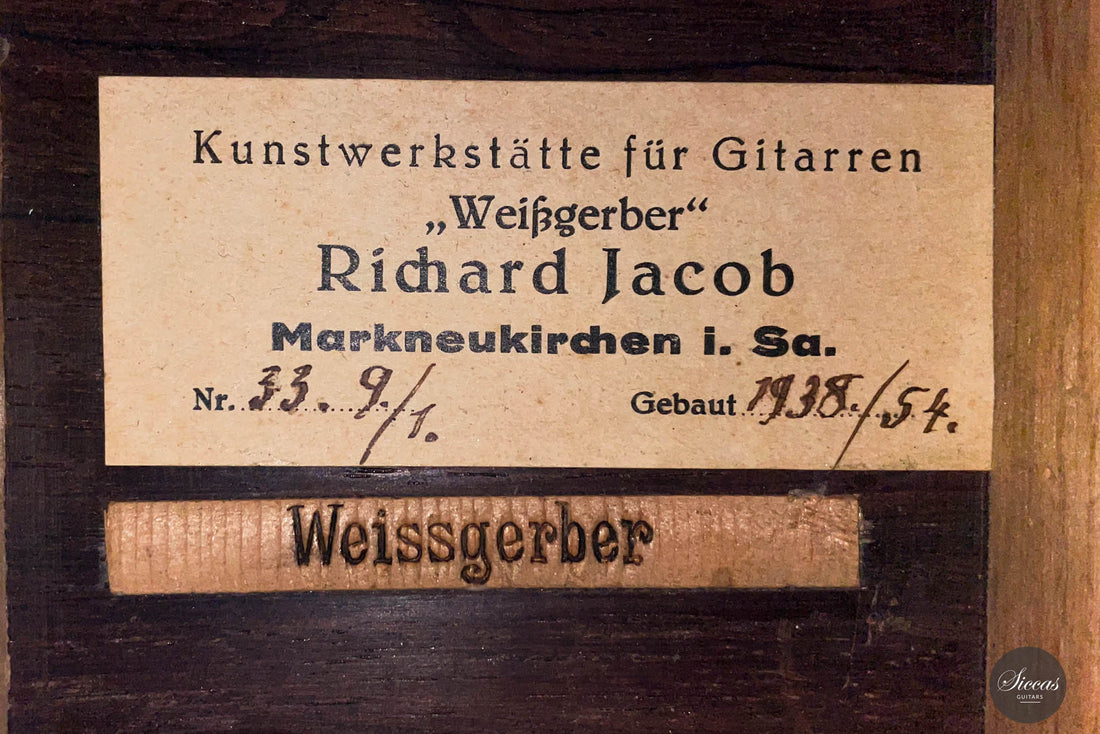 Kunstwerkstätte für Gitarren
„Weißgerber“
Richard Jacob
Markneukirchen i. Sa.
Nr. 33. 9./1. Gebaut 1938./54.
Weissgerber
Siccas
GUITARS